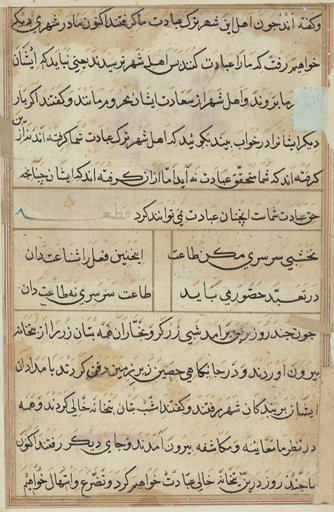 و گفته اند چون اهل این شهر ترک عبادت ما گرفتند اکنون ما در شهری دیگر
خواهیم رفت که ما را عبادت کنند پس اهل شهر ترسیدند یعنی نباید که ایشان
ما بروند و اهل شهر از سعادت ایشان محروم مانند و گفتند اگر بار
دیگر ایشانرا در خواب بینید بگوئید که اهل شهر ترک عبادت شما گرفته اند
گرفته اند که شما مستحق عبادت نه اید اما از آن گرفته اند که ایشان چنانچه
حق عبادت شماست آنچنان عبادت نمی توانند کرد قطعه
نخشبی سرسری مکن طاعت
اینچنین فعل را شناعت دان
در تعبد حضور می باید
طاعت سرسری نه طاعت دان
چون چند روز برین برآمد شبی زرگر و نجار آن همه بتان زر را از بتخانه
بیرون آوردند و در جایگاهی حصین زیر زمین دفن کردند بامدادان
ایشان بر بندگان شهر رفتند و گفتند امشب بتان بتخانه خالی کردند و همه
در نظر ما معاینه و مکاشفه بیرون آمدند و جای دیگر رفتند اکنون
ما چند روز درین بتخانه خالی عبادت خواهیم کرد و تضرع و ابتهال خواهیم